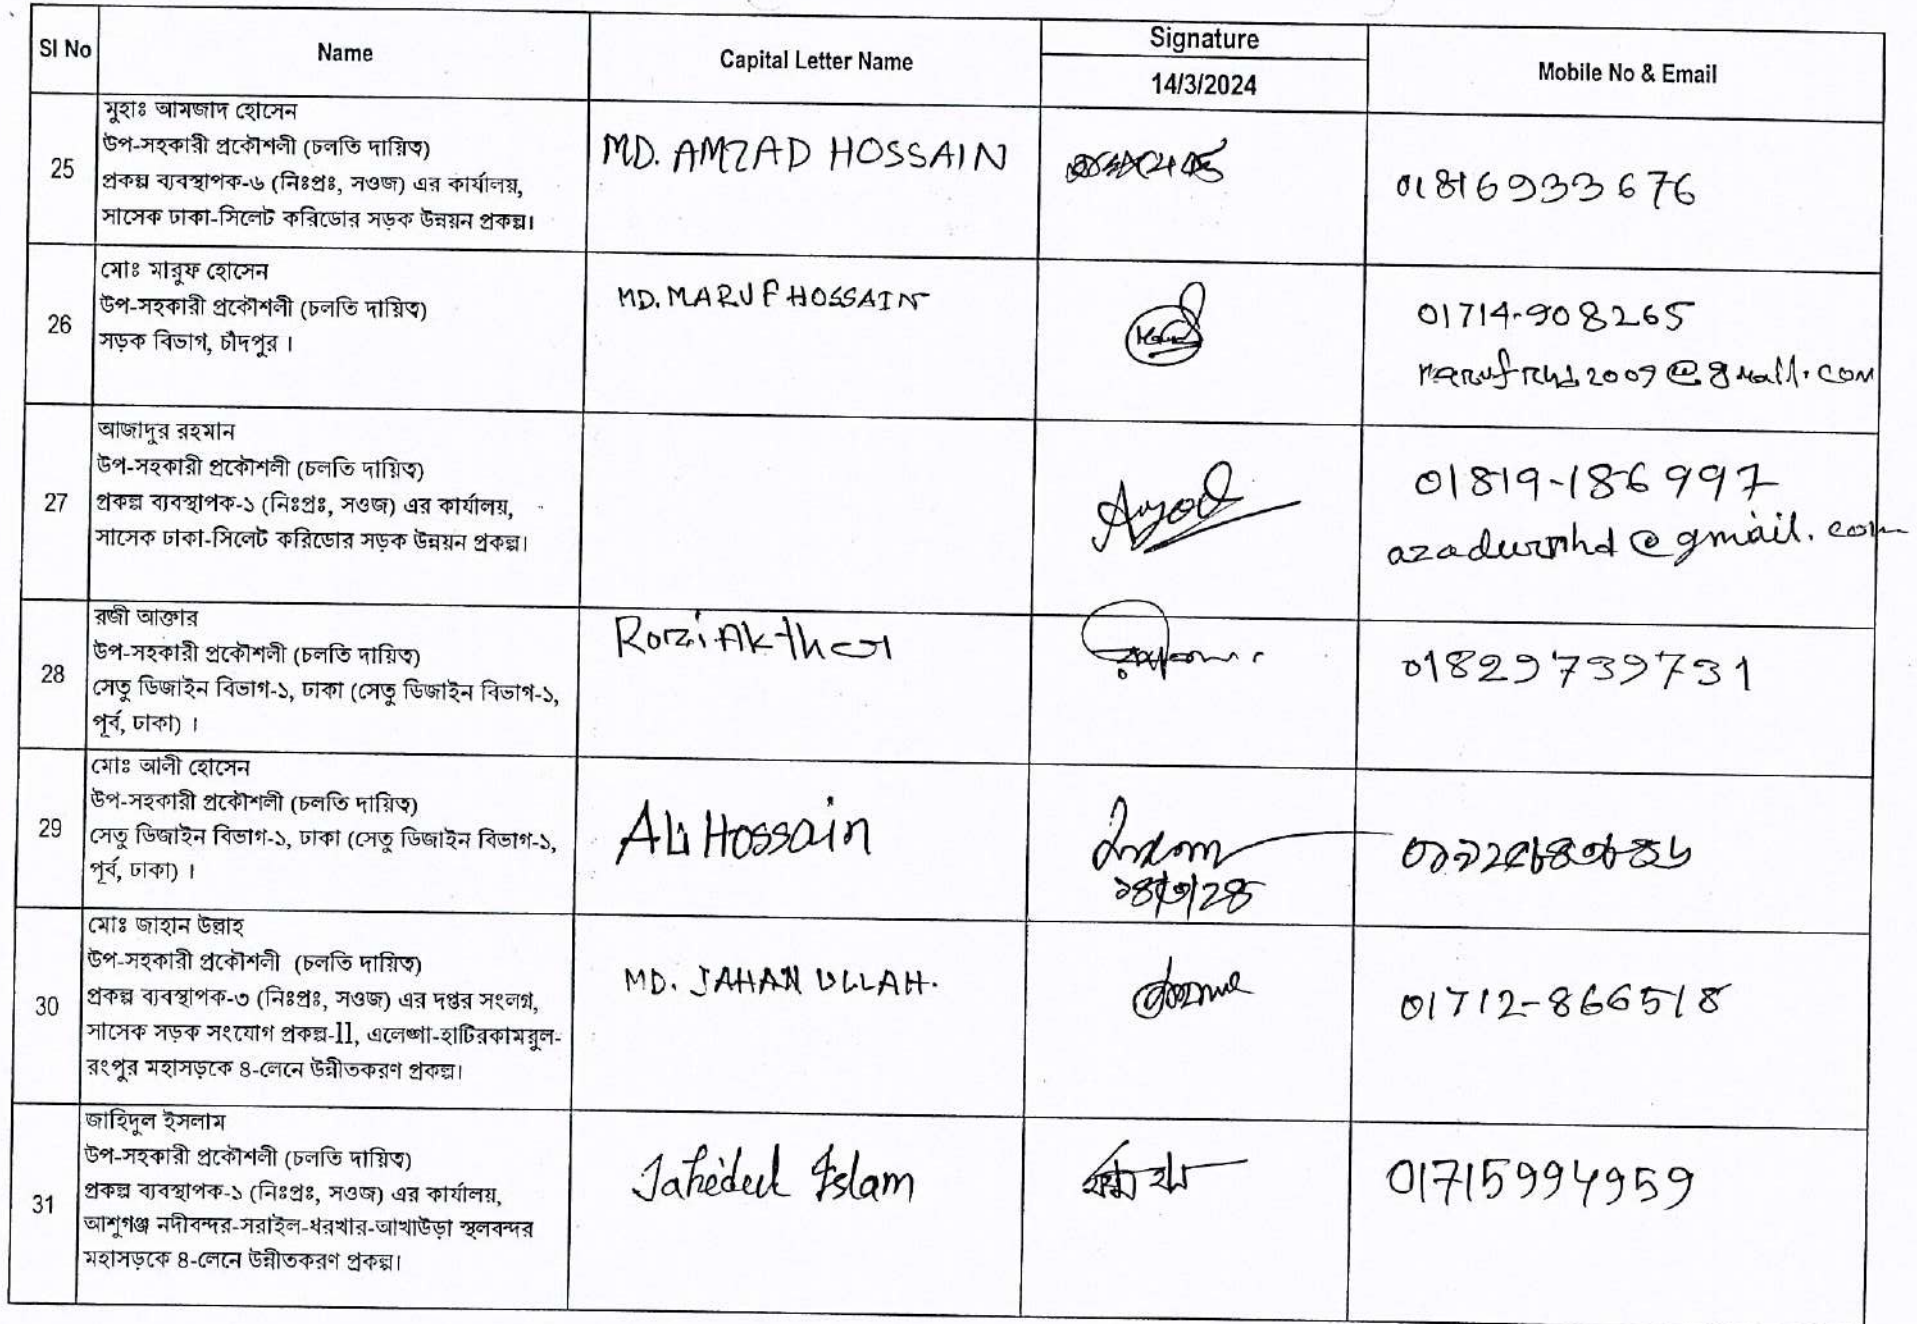 Sl No
Name
Capital Letter Name
Signature
14/3/2024
Mobile No & Email
25
মুহাঃ আমজাদ হোসেন
উপ-সহকারী প্রকৌশলী (চলতি দায়িত্ব)
প্রকল্প ব্যবস্থাপক-৬ (নিঃপ্রঃ, সওজ) এর কার্যালয়,
সাসেক ঢাকা-সিলেট করিডোর সড়ক উন্নয়ন প্রকল্প।
MD. AMZAD HOSSAIN
01816933676
26
মোঃ মারুফ হোসেন
উপ-সহকারী প্রকৌশলী (চলতি দায়িত্ব)
সড়ক বিভাগ, চাঁদপুর ।
MD. MARUF HOSSAIN
01714-908265
marufrhd2009@gmail.com
27
আজাদুর রহমান
উপ-সহকারী প্রকৌশলী (চলতি দায়িত্ব)
প্রকল্প ব্যবস্থাপক-১ (নিঃপ্রঃ, সওজ) এর কার্যালয়,
সাসেক ঢাকা-সিলেট করিডোর সড়ক উন্নয়ন প্রকল্প।
01819-186997
azadurrhd@gmail.com
28
রজী আক্তার
উপ-সহকারী প্রকৌশলী (চলতি দায়িত্ব)
সেতু ডিজাইন বিভাগ-১, ঢাকা (সেতু ডিজাইন বিভাগ-১,
পূর্ব, ঢাকা) ।
Rozi Akther
01829739731
29
মোঃ আলী হোসেন
উপ-সহকারী প্রকৌশলী (চলতি দায়িত্ব)
সেতু ডিজাইন বিভাগ-১, ঢাকা (সেতু ডিজাইন বিভাগ-১,
পূর্ব, ঢাকা) ।
Ali Hossain
১৪/৩/২৪
30
মোঃ জাহান উল্লাহ
উপ-সহকারী প্রকৌশলী (চলতি দায়িত্ব)
প্রকল্প ব্যবস্থাপক-৩ (নিঃপ্রঃ, সওজ) এর দপ্তর সংলগ্ন,
সাসেক সড়ক সংযোগ প্রকল্প-II, এলেঙ্গা-হাটিরকামরুল-
রংপুর মহাসড়কে ৪-লেনে উন্নীতকরণ প্রকল্প।
MD. JAHAN ULLAH.
01712-866518
31
জাহিদুল ইসলাম
উপ-সহকারী প্রকৌশলী (চলতি দায়িত্ব)
প্রকল্প ব্যবস্থাপক-১ (নিঃপ্রঃ, সওজ) এর কার্যালয়,
আশুগঞ্জ নদীবন্দর-সরাইল-ধরখার-আখাউড়া স্থলবন্দর
মহাসড়কে ৪-লেনে উন্নীতকরণ প্রকল্প।
Jahedul Islam
01715994959